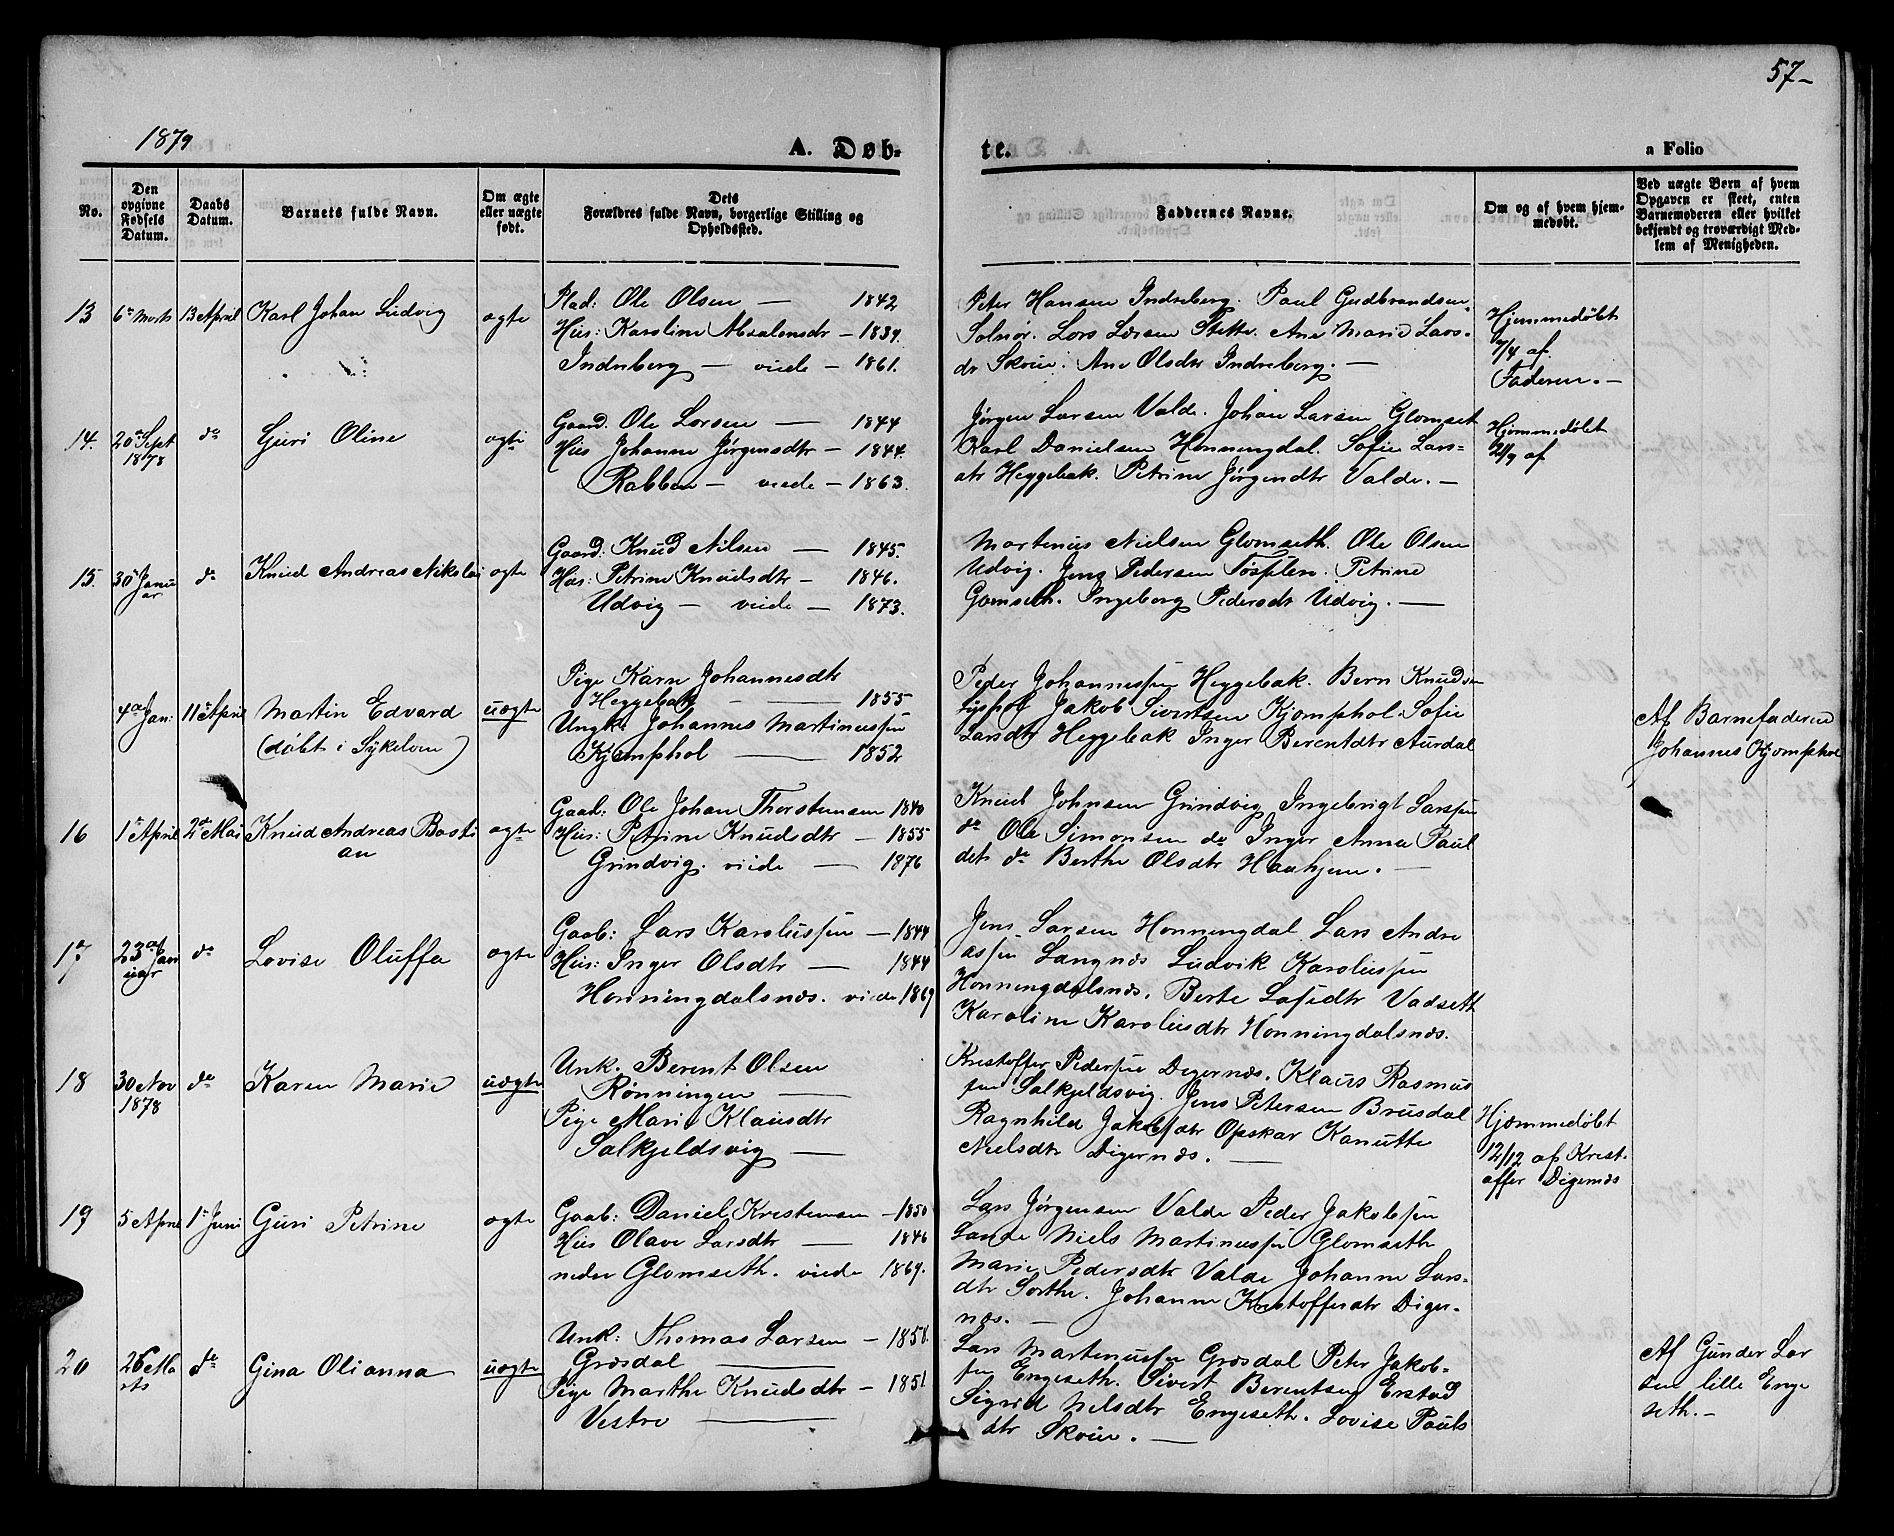 57-
1879
A. Døb-
te.
a Folio
No.
Den opgivne Fødsels Datum.
Daabs Datum.
Barnets fulde Navn.
Om ægte eller uægte født.
Dets Forældres fulde Navn, borgerlige Stilling og Opholdssted.
Faddernes Navne.
Om og af hvem hjemmedøbt.
Ved uægte Børn af hvem Opgaven er skeet, enten Barnemoderen eller hvilket bekjendt og troværdigt Medlem af Menigheden.
13 6te Marts 13 April Karl Johan Ludvig ægte
Plad: Ole Olsen — 1842
Hus: Karoline Absalonsdtr — 1839.
Indreberg — viede — 1861.
Peter Hansen Indreberg. Paul Gudbrandsen
Solnør. Lars Larsen Stette. Ane Marie Lars-
dr Skoue. Ane Olsdtr Indreberg. —
Hjemmedøbt
7/4 af
Faderen. —
14. 20de Sept 1878 do Guri Oline ægte
Gaard. Ole Larsen — 1844
Hus Johanne Jørgensdtr — 1844.
Rabben — viede — 1863.
Jørgen Larsen Valde. Johan Larsen Glomset
Karl Danielsen Honningdal. Sofie Lars-
dtr Heggebak. Petrine Jørgendtr Valde. —
Hjemmedøbt
21/9 af
15. 30te Januar do Knud Andreas Nikolai ægte
Gaard: Knud Nilsen — 1845.
Hus: Petrine Knudsdtr — 1846.
Udvig — viede — 1873.
Martinus Nielsen Glomseth. Ole Olsen
Udvig. Jens Pedersen Petrine
Ingeborg Pedersdtr Udvig. —
4de Jan: 11te April Martin Edvard
(døbt i Sykelven) uægte
Pige Karn Johannesdtr
Heggebak — 1855
Ungk: Johannes Martinussen
Kjømphol — 1852
Peder Johannessen Heggebak. Bern Knudsen
Jakob Sivertsen Kjømphol. Sofie
Larsdtr Heggebak Inger Berentdtr Aurdal
Af Barnefaderen
Johannes Kjømphol
16 1te April 2de Mai Knud Andreas Basti
an ægte
Gaab: Ole Johan Thorstensen 1840
Hus: Petrine Knudsdtr — 1855
Grindvig. viede — 1876
Knud Johnsen Grindvig Ingebrigt Larssen
do Ole Simonsen do Inger Anna Paul
dtr do Berthe Olsdtr Haahjem. —
17 23de Januar do Lovise Oluffa ægte
Gaab: Lars Karolussen — 1844
Hus: Inger Olsdtr — 1844
Honningdalsnæs. viede 1869
Jens Larsen Honningdal Lars Andre
assen Langnæs Ludvik Karolussen
Honningdalsnæs. Berte Vadseth
Karoline Karolusdtr Honningdalsnæs.
18 30 Nov 1878 do Karen Marie uægte
Unk. Berent Olsen
Rønningen —
Pige Mari Klausdtr
Salkjeldsvig —
Kristoffer Pedersen Digernæs. Klaus Rasmus
sen Salkjeldsvig. Jens Petersen Brusdal
Ragnhild Jakobsdtr Opskar Kanutte
Nielsdtr Digernæs. —
Hjemmedøbt
12/12 af Krist-
offer Digernæs
19 5 April 1te Juni Guri Petrine ægte
Gaab: Daniel Kristensen — 1850
Hus Olave Larsdtr — 1846
nedre Glomseth. viede 1869.
Lars Jørgensen Valde Peder Jakobsen
Lande Niels Martinussen Glomseth
Marie Pedersdtr Valde Johanne Lars-
dtr Sorthe. Johanne Kristoffersdtr Diger-
næs. —
20 26 Marts do Gina Olianna uægte
Unk: Thomas Larsen — 1858.
Grøsdal —
Pige Marthe Knudsdtr — 1851
Vestre —
Lars Martinussen Grøsdal Peter Jakob-
sen Engeseth. Sivert Berentsen Erstad
Sigrid Nelsdtr Engeseth. Lovise Pauls
dtr Skoue. —
Af Gunder Lar
sen lille Enge
seth. —